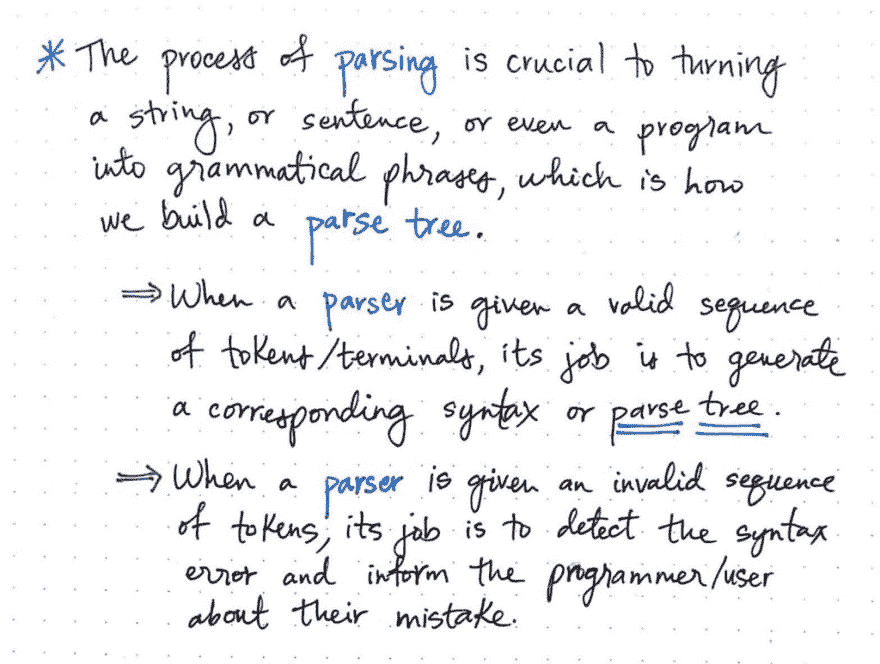 * The process of parsing is crucial to turning
a string, or sentence, or even a program
into grammatical phrases, which is how
we build a parse tree.
⇒ When a parser is given a valid sequence
of tokens/terminals, its job is to generate
a corresponding syntax or parse tree.
⇒ When a parser is given an invalid sequence
of tokens, its job is to detect the syntax
error and inform the programmer/user
about their mistake.